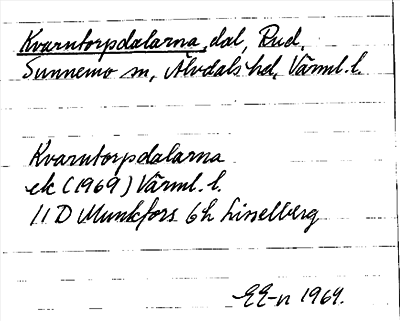 Kvarntorpdalarna, dal, Rud,
Sunnemo sn, Älvdals hd, Värml. l.
Kvarntorpdalarna
ek (1969) Värml. l.
11 D Munkfors 6h Lisselberg
EE-n 1969.